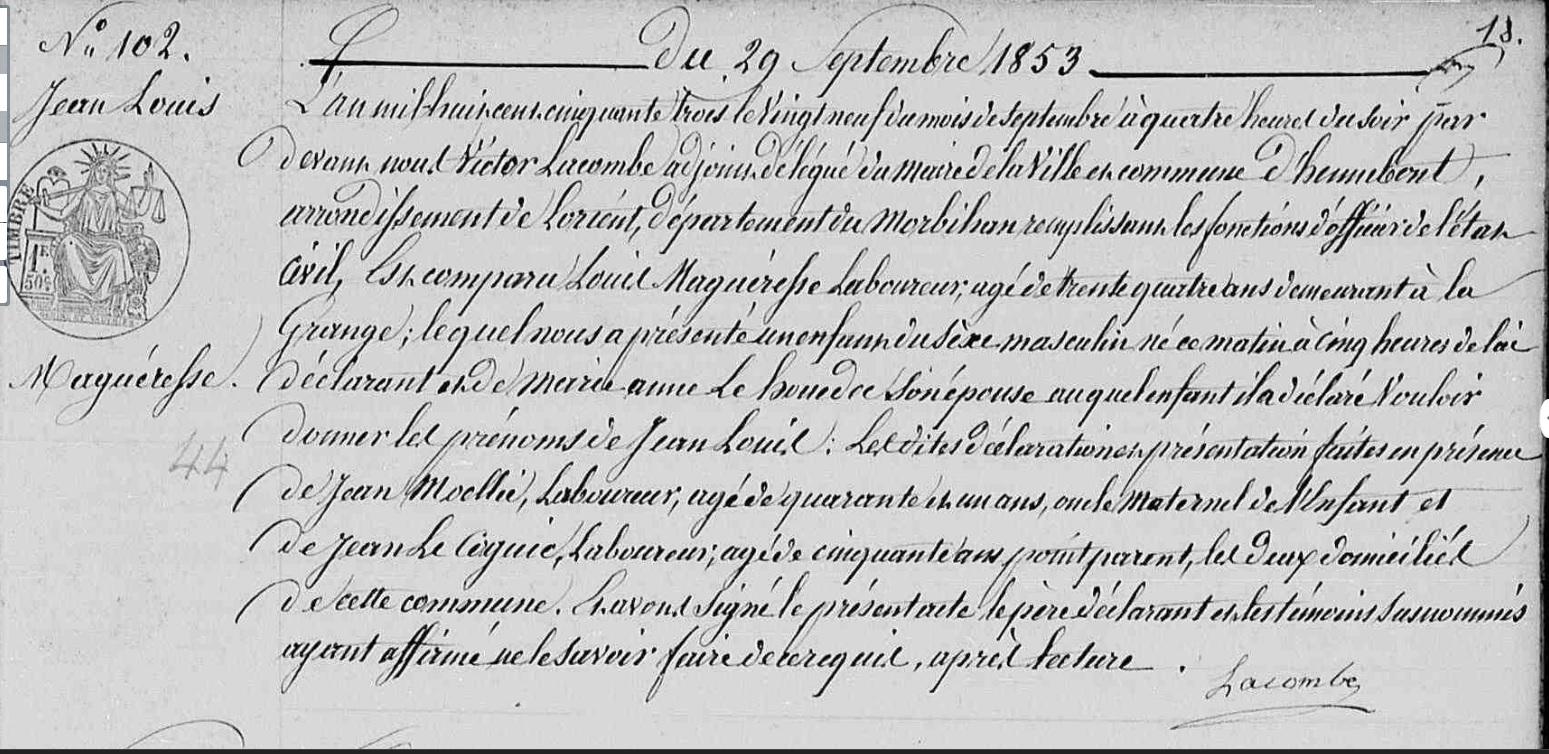 N° 102.
Du 29 Septembre 1853
18.
Jean Louis
L'an mil huit cent cinquante trois le vingt neuf du mois de septembre à quatre heures du soir par
devant nous Victor Lacombe adjoint délégué du maire de la ville et commune d'hennebont,
arrondissement de Lorient, département du Morbihan remplissant les fonctions d'officier de l'état
civil, Est comparu Louis Maguéresse Laboureur, agé de trente quatre ans demeurant à la
Grange; lequel nous a présenté un enfant du sèxe masculin né ce matin à cinq heures de lui
déclarant et de marie anne Le houedec son épouse auquel enfant il a déclaré vouloir
donner les prénoms de Jean Louis: Les dites déclaration et présentation faites en présence
de Jean Moellic, Laboureur, agé de quarante et un ans, oncle maternel de l'Enfant et
de Jean Le Ciguic, Laboureur, agé de cinquante ans point parent, les deux domiciliés
de cette commune. Et avons signé le présent acte le père déclarant et les témoins susnommés
ayant affirmé ne le savoir faire de ce requis, après lecture.
Lacombe
TIMBRE
1F.
50c
Maguéresse.
44